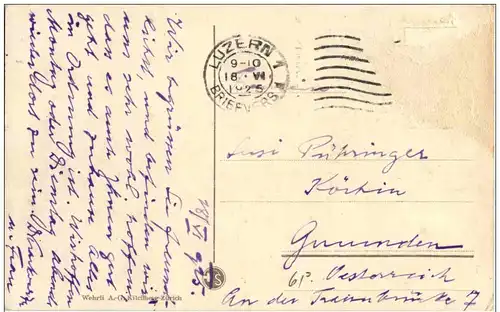 18/VI 925.
Wir begrüssen Sie freund-
lichst, und befinden
uns sehr wohl, hoffen
das es auch Ihnen gut
geht und zuhause alles
in Ordnung ist. Wir hoffen
Montag oder Dienstag abends
wieder dort zu sein
u. Frau
LUZERN 1
9-10
18. VI
1925
BRIEFVERS.
Susi Pühringer
Köchin
Gmunden
Oesterreich
An der Traunbrücke 7
Wehrli A.-G. Kilchberg-Zürich